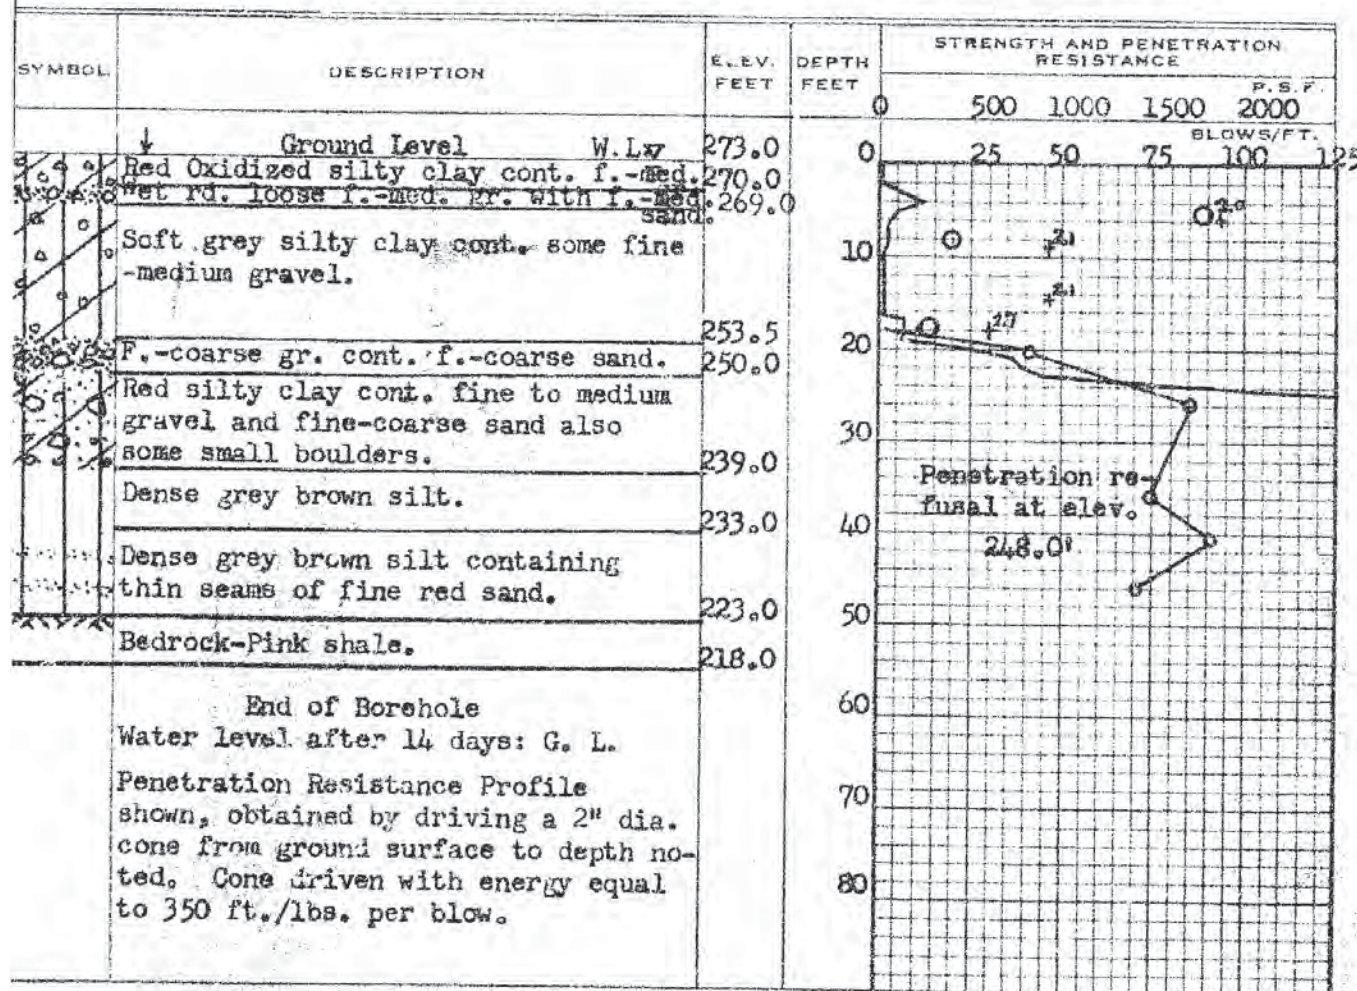 SYMBOL
DESCRIPTION
ELEV.
FEET
DEPTH
FEET
STRENGTH AND PENETRATION
RESISTANCE
P.S.F.
0 500 1000 1500 2000
BLOWS/FT.
0 25 50 75 100 125
Ground Level W.L. 273.0
Red Oxidized silty clay cont. f.-med. 270.0
Wet rd. loose f.-med. gr. with f.-med. 269.0
sand.
Soft grey silty clay cont. some fine
-medium gravel.
253.5
F.-coarse gr. cont. f.-coarse sand. 250.0
Red silty clay cont. fine to medium
gravel and fine-coarse sand also
some small boulders. 239.0
Dense grey brown silt.
233.0
Dense grey brown silt containing
thin seams of fine red sand.
223.0
Bedrock-Pink shale.
218.0
End of Borehole
Water level after 14 days: G. L.
Penetration Resistance Profile
shown, obtained by driving a 2" dia.
cone from ground surface to depth no-
ted. Cone driven with energy equal
to 350 ft./lbs. per blow.
10
20
30
40
50
60
70
80
Penetration re-
fusal at elev.
248.0'